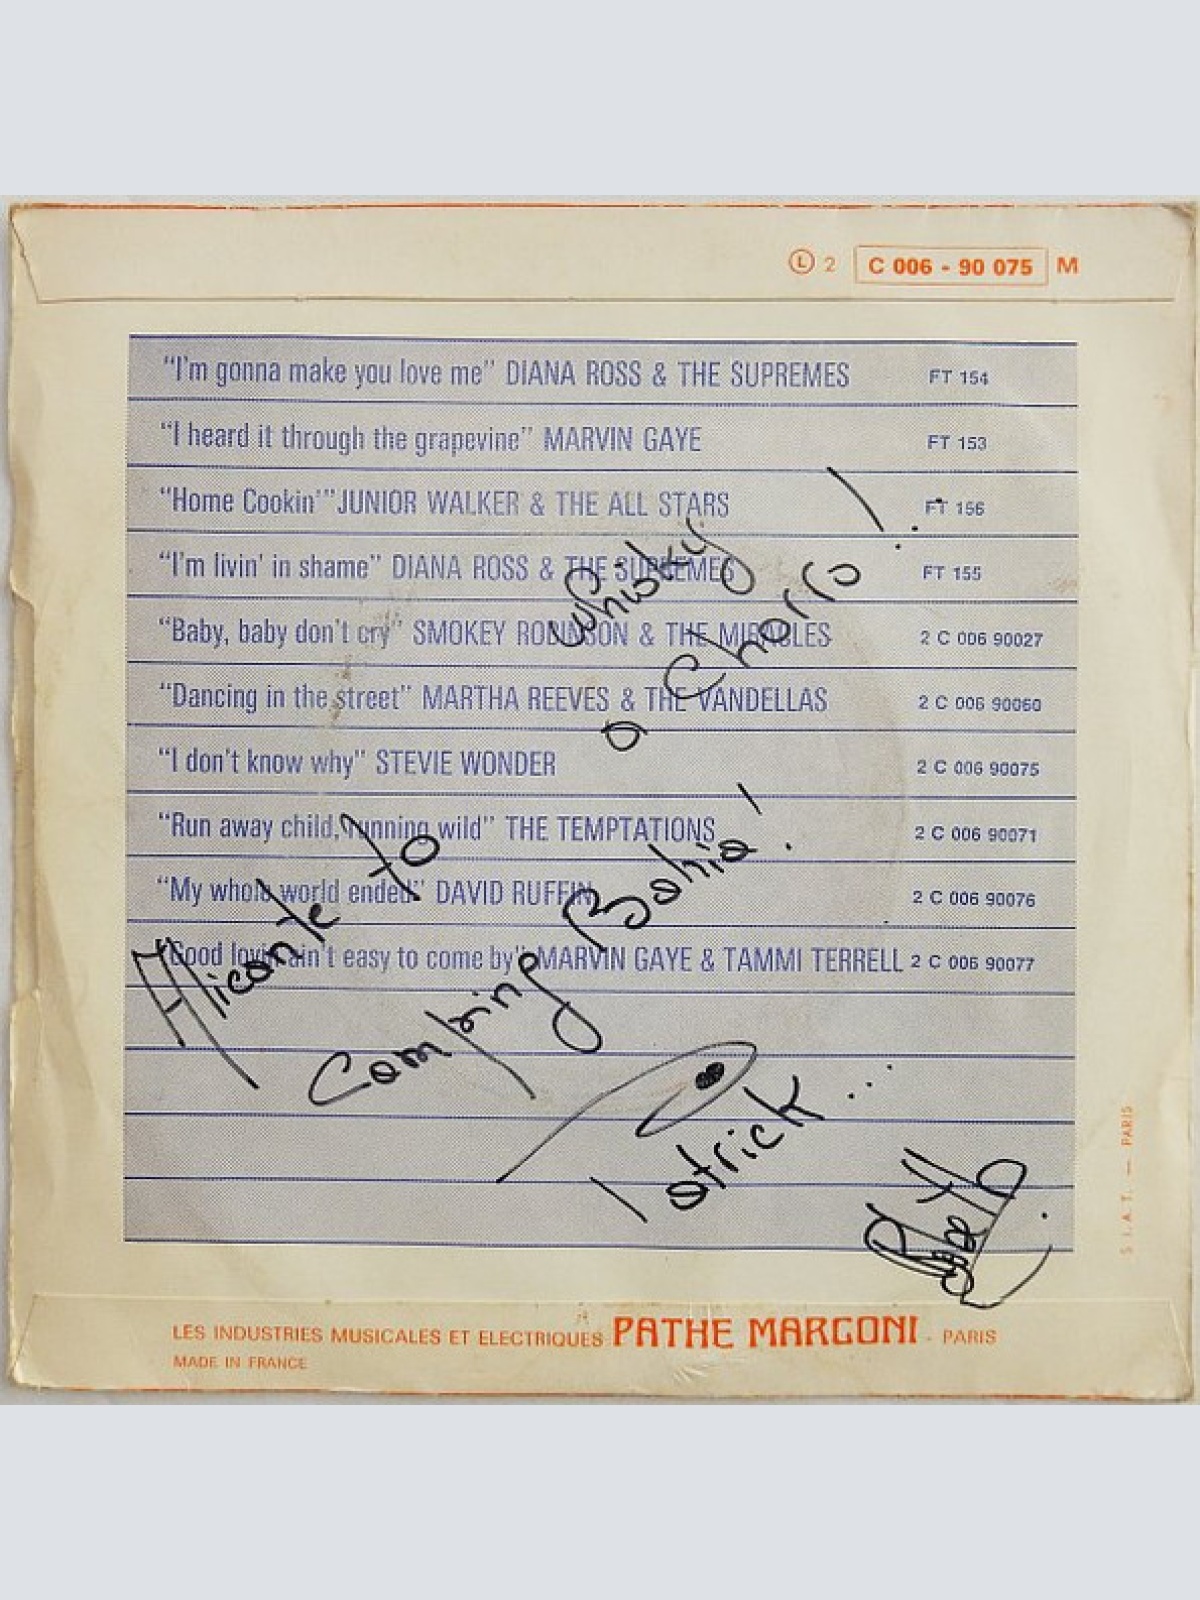 Ⓛ 2 C 006 - 90 075 M
“I'm gonna make you love me” DIANA ROSS & THE SUPREMES FT 154
“I heard it through the grapevine” MARVIN GAYE FT 153
“Home Cookin'”JUNIOR WALKER & THE ALL STARS FT 156
“I'm livin' in shame” DIANA ROSS & THE SUPREMES FT 155
“Baby, baby don't cry” SMOKEY ROBINSON & THE MIRACLES 2 C 006 90027
“Dancing in the street” MARTHA REEVES & THE VANDELLAS 2 C 006 90060
“I don't know why” STEVIE WONDER 2 C 006 90075
“Run away child, running wild” THE TEMPTATIONS 2 C 006 90071
“My whole world ended” DAVID RUFFIN 2 C 006 90076
“Good lovin' ain't easy to come by” MARVIN GAYE & TAMMI TERRELL 2 C 006 90077
Whisky
a Chorro!
Alicante to
Camping Bahia!
Patrick...
S.I.A.T. — PARIS
LES INDUSTRIES MUSICALES ET ELECTRIQUES PATHE MARCONI - PARIS
MADE IN FRANCE